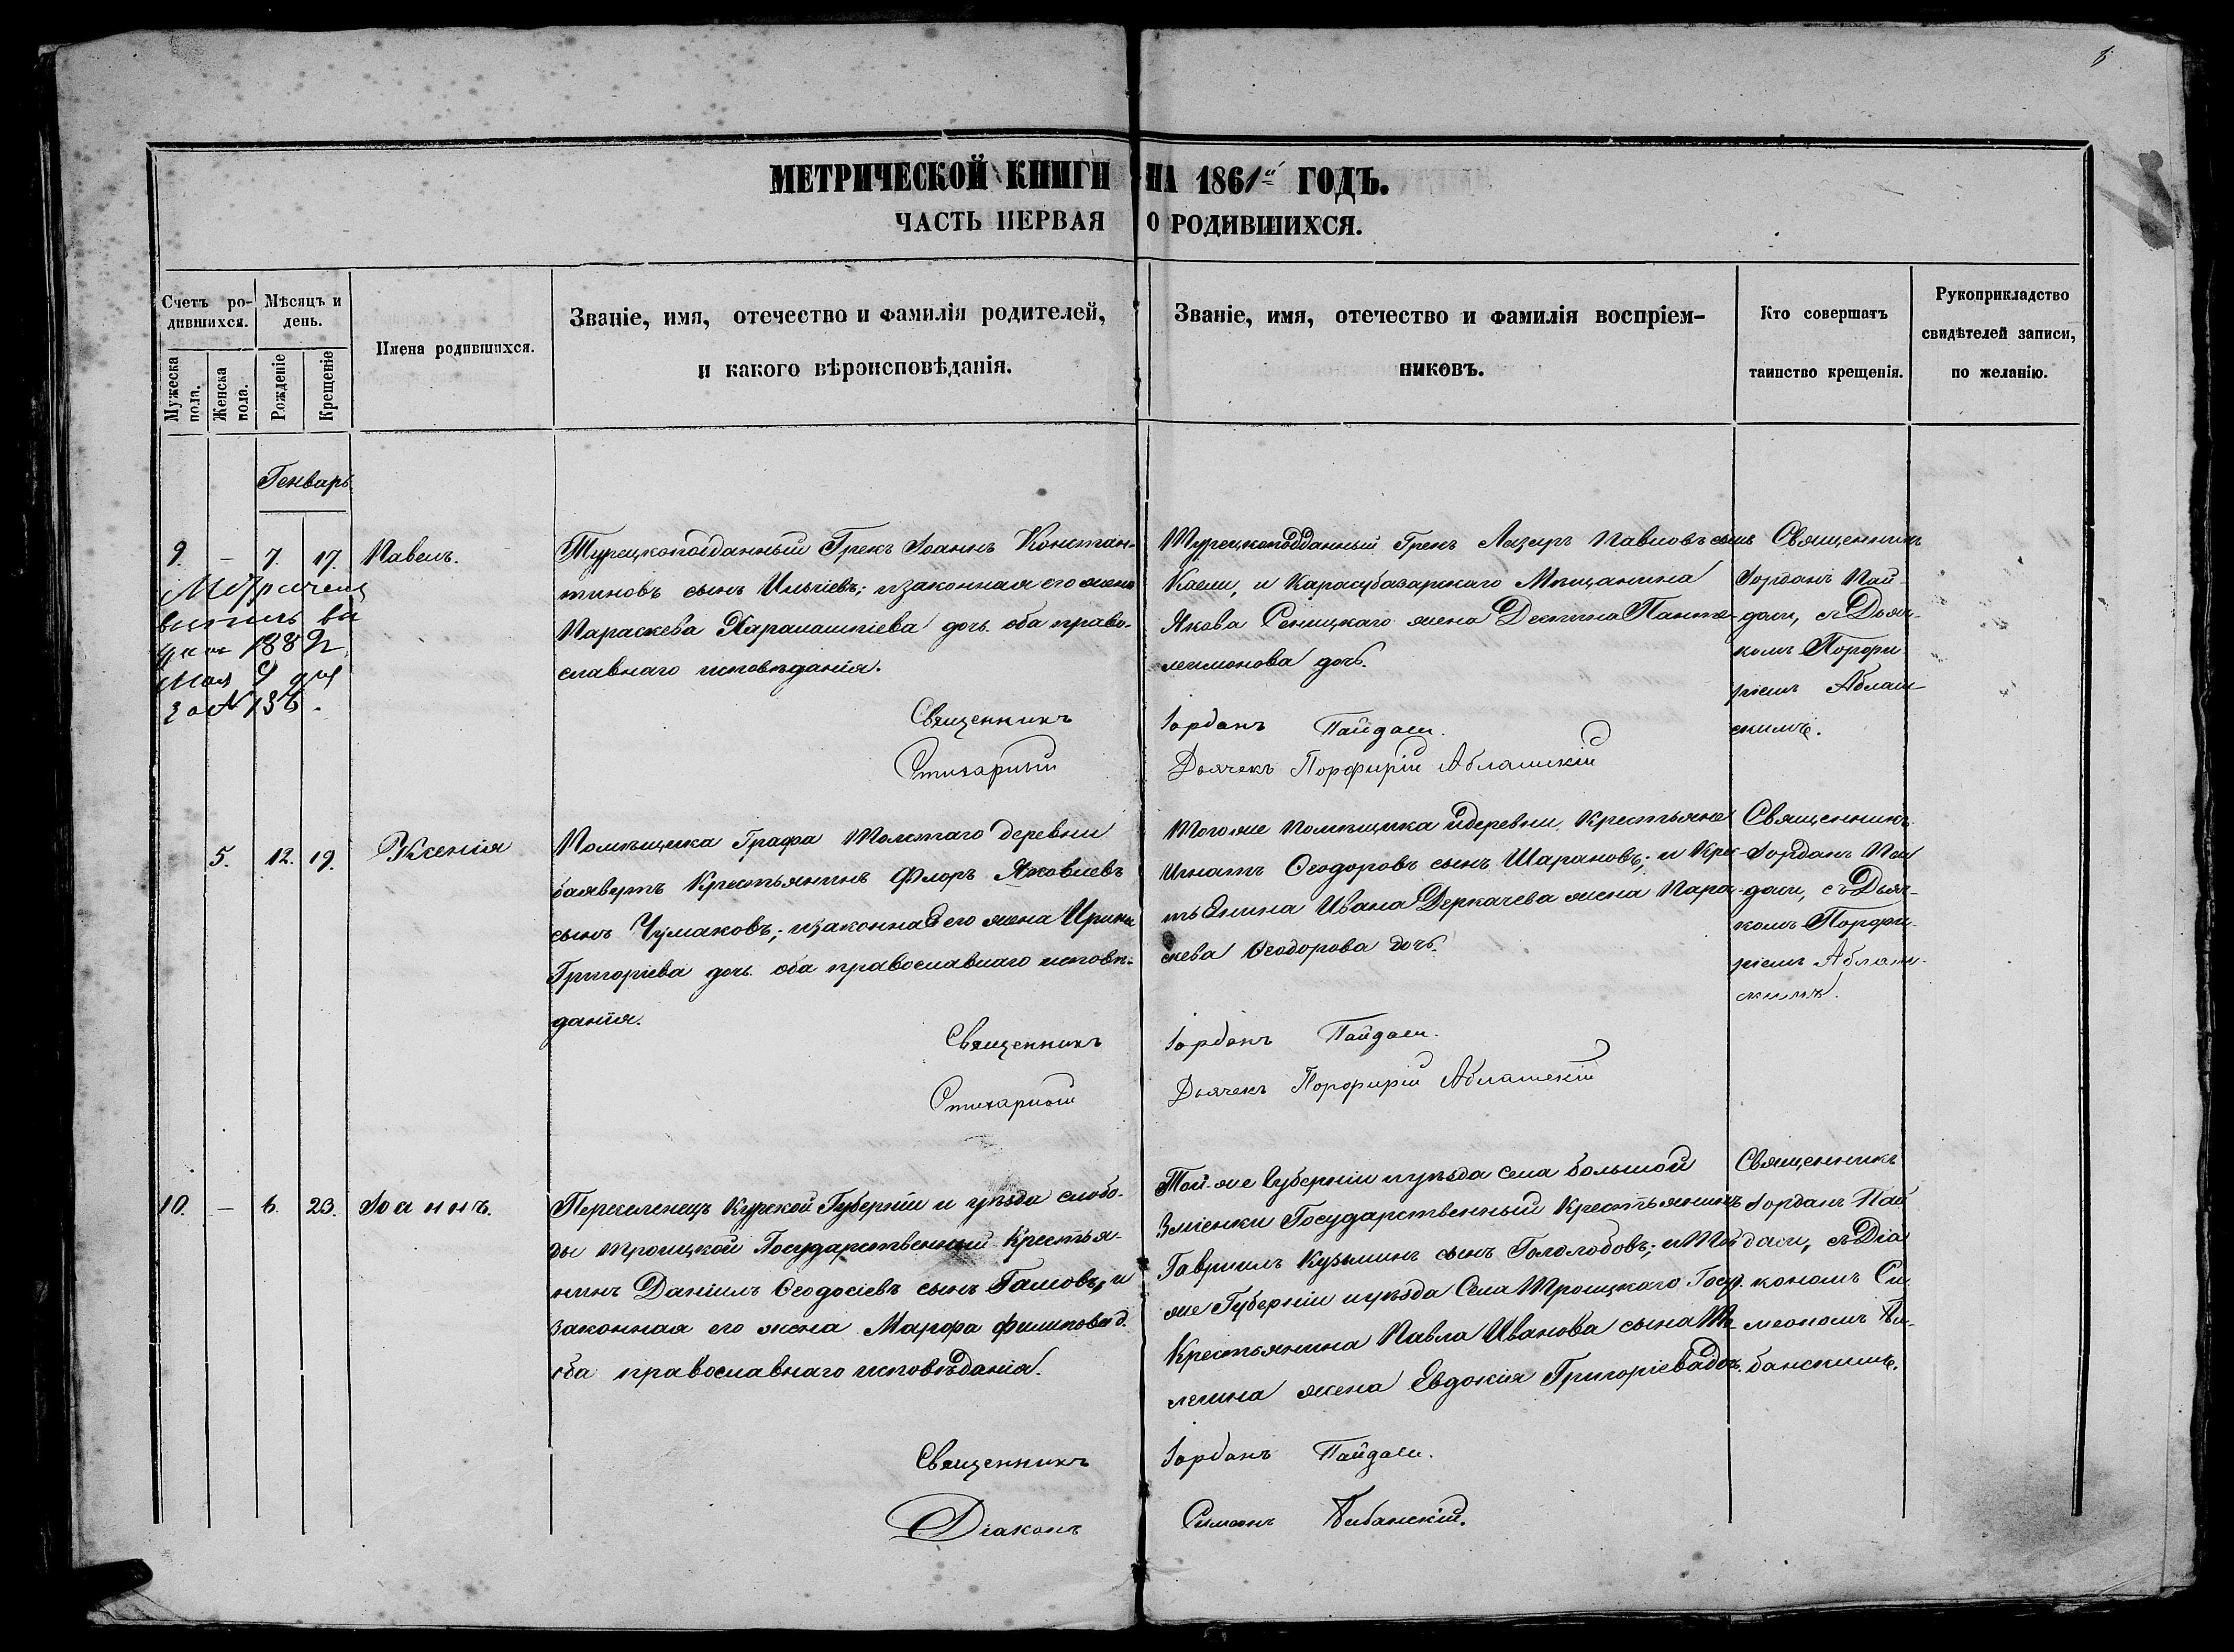 МЕТРИЧЕСКОЙ КНИГИ НА 1861й ГОДЪ.
ЧАСТЬ ПЕРВАЯ О РОДИВШИХСЯ.
Счетъ ро-
дившихся.
Мужеска пола.
Женска пола.
Мѣсяцъ и
день.
Рожденіе
Крещеніе
Имена родившихся.
Званіе, имя, отечество и фамилія родителей,
и какого вѣроисповѣданія.
Званіе, имя, отечество и фамилія воспріем-
никовъ.
Кто совершатъ
таинство крещенія.
Рукоприкладство
свидѣтелей записи,
по желанію.
Генварь
9. – 7. 17. Павелъ.
1882
Мая 9 дня
за № 136.
Турецкоподданный Грекъ Іоаннъ Констан-
тиновъ сынъ Ильчіевъ; и законная его жена
Параскева дочь оба право-
славнаго исповѣданія.
Турецкоподданный Грекъ Лазарь Павловъ сынъ
и Карасубазарскаго Мѣщанина
Якова жена Деспина Панте-
леимонова дочь.
Священникъ
Іорданъ Пай-
даси, съ Дьяч-
комъ Порфи-
ріемъ Аблаш-
скимъ.
Священникъ Іорданъ Пайдаси.
Стихарный Дьячекъ Порфирій Аблашскій
5. 12. 19. Ксенія
Помѣщика Графа Толстаго деревни
Крестьянинъ Флоръ Яковлевъ
сынъ Чумаковъ; и законная его жена Ирина
Григоріева дочь оба православнаго исповѣ-
данія.
Того же помѣщика и деревни Крестьяне
Игнатъ Ѳеодоровъ сынъ Шарановъ; и Крес-
тьянина Ивана Деркачева жена Пара-
скева Ѳеодорова дочь.
Священникъ
Іорданъ Пай
даси, съ Дьяч-
комъ Порфи-
ріемъ Аблаш-
скимъ.
Священникъ Іорданъ Пайдаси.
Стихарный Дьячекъ Порфирій Аблашскій
10. – 6. 23. Іоаннъ.
Переселенецъ Курской Губерніи и уѣзда слобо-
ды Троицкой Государственный Крестья-
нинъ Даніилъ Ѳеодосіевъ сынъ и
законная его жена Марфа Филипова д.
оба православнаго исповѣданія.
Той-же Губерніи и уѣзда села большой
Зміенки Государственный Крестьянинъ
Гавріилъ Кузьминъ сынъ Гололобовъ; и Той
же Губерніи и уѣзда Села Троицкаго Госуд.
Крестьянина Павла Иванова сына
жена Евдокія Григоріева дочь.
Священникъ
Іорданъ Пай
даси, съ Діа
кономъ Си
меономъ
Священникъ Іорданъ Пайдаси.
Діаконъ Симеонъ